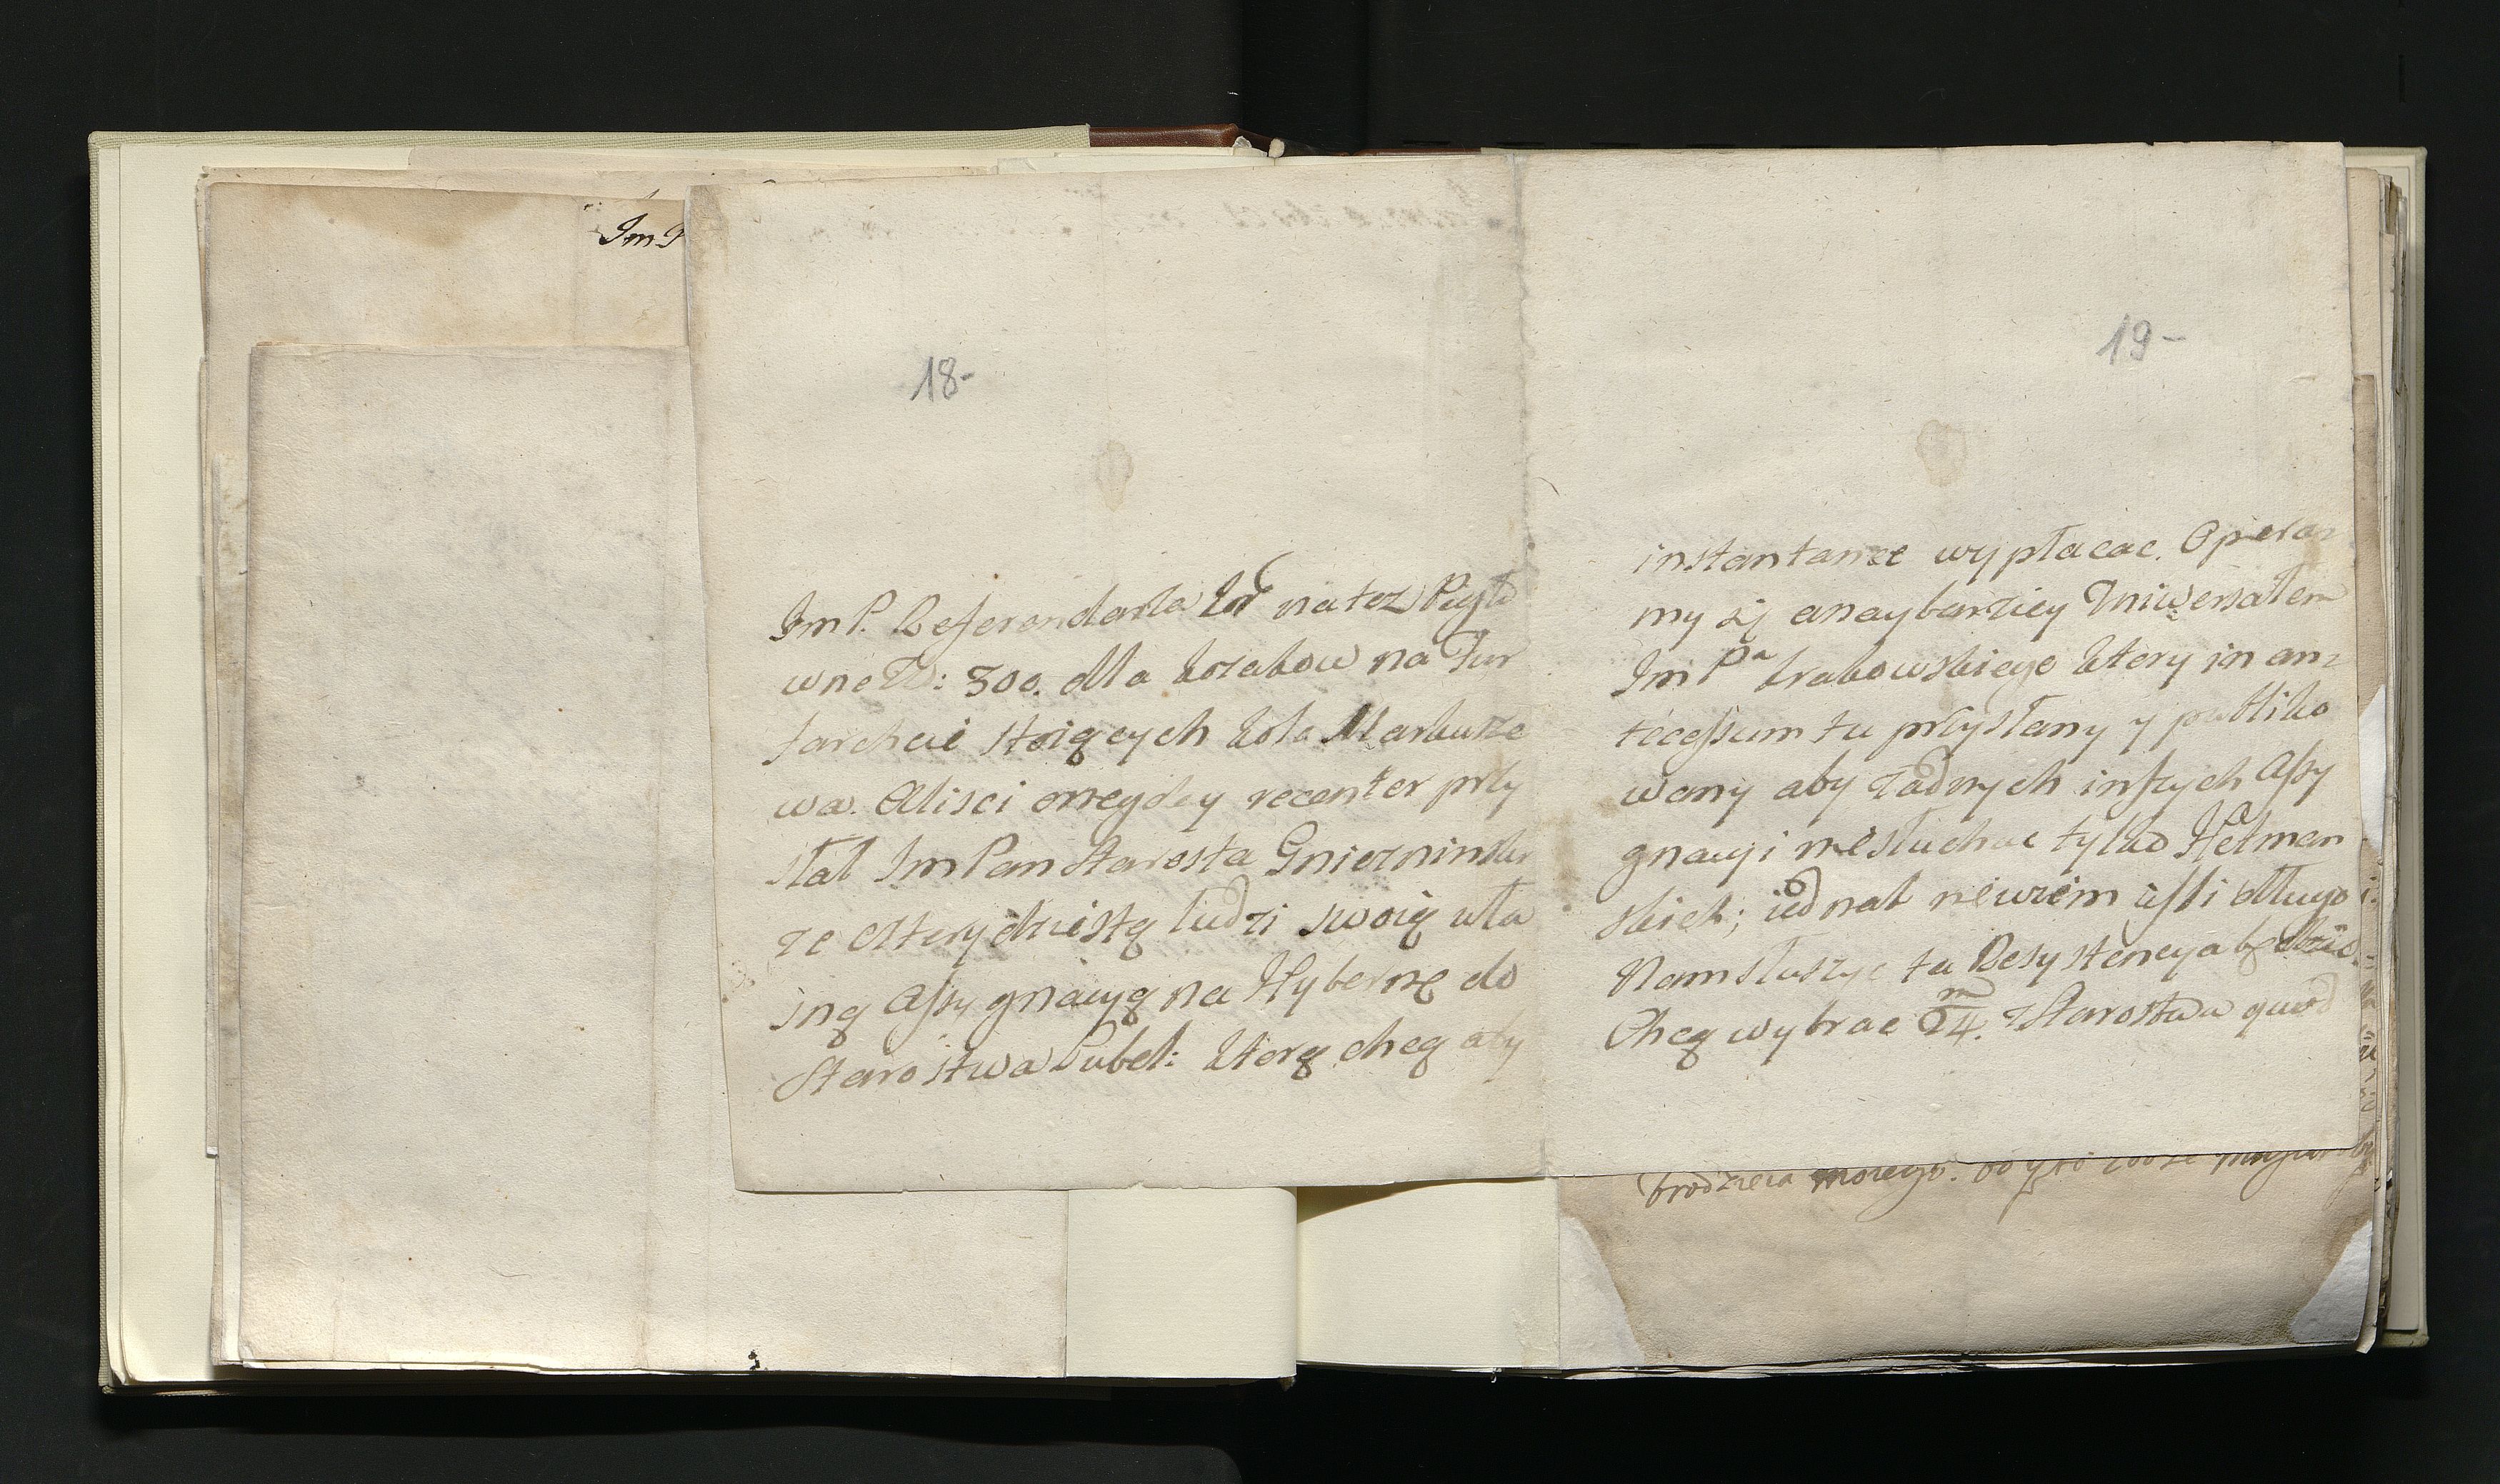 Im P
18-
Im P. Referendarza Kor na tez Piiął
wne Tt: 300. dla kozakow na Fur
farchcie stoiących koło Markusze
wa. Aliści onegday recenter przy
słał Im Pan Starosta Gniezninski
ze czterydziestą ludzi swoię wła
sną Assygnacyą na Hybernę do
Starostwa Lubel: ktorą chcą aby
19-
instantanee wypłacac. Opiera
my się a naybarziey Uniwersałem
Im Pa Grabowskiego ktory in an=
tecessum tu przysłany y publiko
wany aby zadnych inszych Assy
gnacyi niesłuchac tylko Hetman
skich; iednak niewiem iesli długo
Nam słuszyc ta Resystencya będzie.
Chcą wybrac 24. m z Starostwa quod
brodzieia moiego.